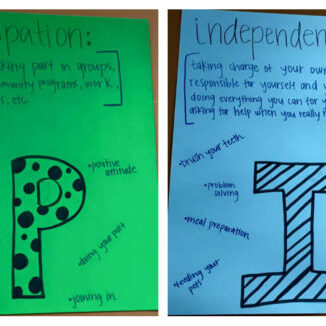 pation:
king part in groups,
mmunity programs, work,
s, etc.
P
•positive
attitude
doing your part
•joining in
independen
taking charge of your own
responsible for yourself and y
doing everything you can for y
asking for help when you really n
•brush your teeth
•problem
solving
•meal preparation
•feeding your
pets
I